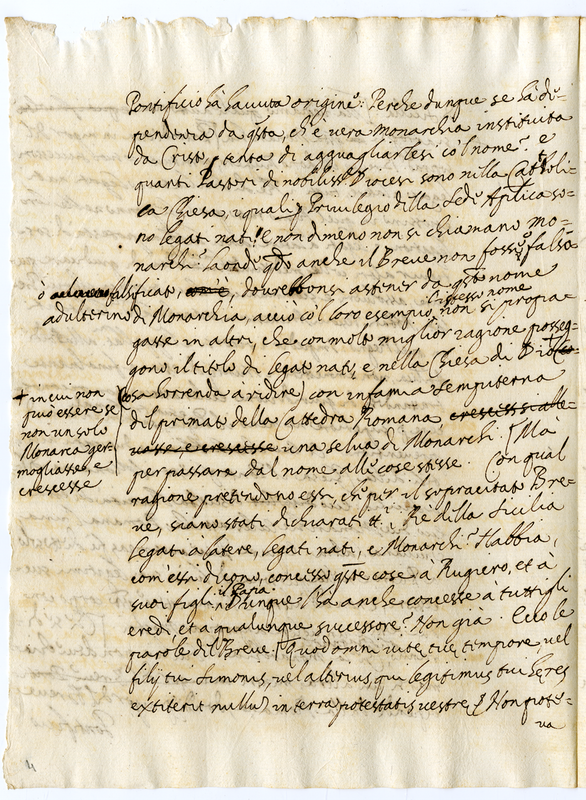 Pontificio hà havuta origine: Perche dunque se hà di-
pendenza da q̃sta, ch'è vera monarchia instituita
da Cristo, tenta di agguagliarlesi co'l nome? e
quanti Pastori di nobiliss.e Diocesi sono nella Cattoli-
ca Chiesa, i quali p Privilegio della Sede Aplica so-
no legati nati? e non di meno non si chiamano mo-
narchi? Laonde q̃do anche il Breve non fosse falsa
ò falsificato, dourebbonsi astener da q̃sto nome
adulterino di Monarchia, acciò co'l loro esempio l'istesso nome non si propa-
gasse in altri, che con molto miglior ragione posseg-
gono il titolo di legati nati, e nella Chiesa di Dio
(cosa horrenda à ridire) con infamia sempiterna
+ in cui non
può essere se
non un solo
Monarca ger-
mogliasse, e
crescesse
del primato della Cattedra Romana, crescesse si alle-
vasse, e crescesse una selva di Monarchi. Ma
per passare dal nome alle cose stesse. Con qual
ragione pretendono essi, che per il sopracitato Bre-
ve, siano stati dichiarati tt.i i Rè della Sicilia
legati à latere, legati nati, e Monarchi? Habbia,
com'essi dicono, concesso q̃ste cose à Rugiero, et à
suoi figli il Papa. Dunque l'hà anche concesse à tutti gli
eredi, et a qualunque successore? Non già. Ecco le
parole del Breve. Quod omni vite tue tempore, vel
filij tui Simonis, vel alterius, qui legitimus tui heres
extiterit nullũ in terra potestatis vestre Non pote-
va
4